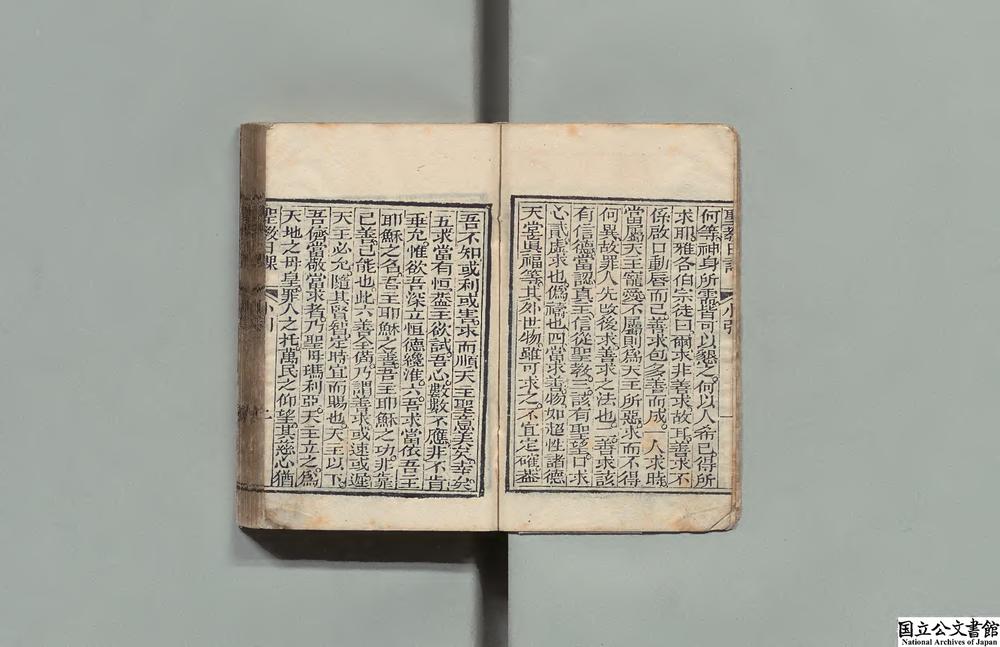 聖教日課 小引 一
何等神身所需皆可以懇之何以人希已得所
求耶雅各伯宗徒曰爾求非善求故耳善求不
係啟口動唇而已善求包多善而成一人求時
當屬天主寵愛不屬則為天主所惡求而不得
何異故罪人先改後求善求之法也二善求該
有信德當認真主信從聖教三該有聖望口求
心貳虛求也偽禱也四當求善物如超性諸德
天堂眞福等其外世物雖可求之不宜定確葢
吾不知或利或害求而順天主聖意美矣幸矣
五求當有恒葢主欲試吾心數數不應非不肯
垂允惟欲吾深立恒德纔准六吾求當依吾主
耶穌之名吾主耶穌之善吾主耶穌之功非靠
己善己能也此六善全備乃謂善求或速或遲
天主必允隨其賢智定時宜而賜也天主以下
吾儕當敬當求者乃聖母瑪利亞天主立之為
天地之母皇罪人之托萬民之仰望其慈心猶
聖教日課 小引
國立公文書館
National Archives of Japan